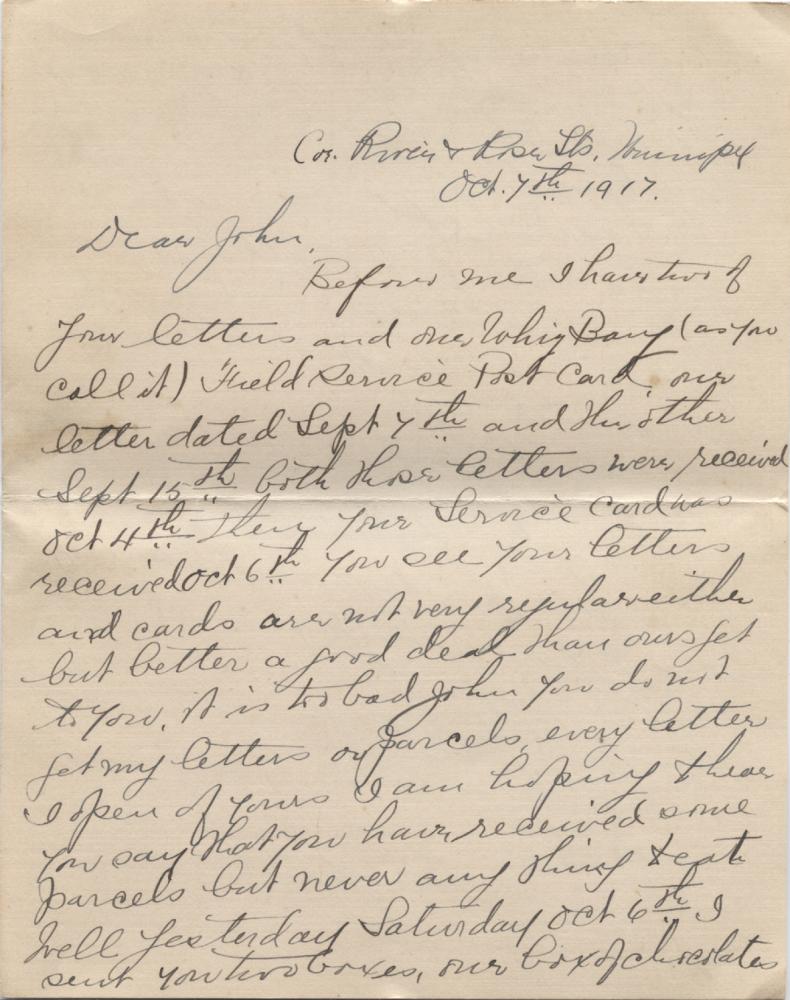 Cor. River & Rose Sts. Winnipeg
Oct. 7th 1917.
Dear John,
Before me I have two of
your letters and one Whiz Bang (as you
call it) "Field Service Post Card" one
letter dated Sept 7th and the other
Sept 15th both those letters were received
Oct 4th then your Service card was
received Oct 6th you see your letters
and cards are not very regular either
but better a good deal than ours get
to you, it is too bad John you do not
get my letters or parcels, every letter
I open of yours I am hoping to hear
you say that you have received some
parcels but never any thing to eat
Well yesterday Saturday Oct 6th I
sent you two boxes, one box of chocolates